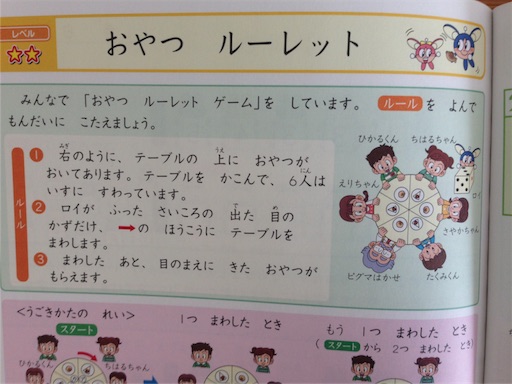 レベル
おやつ ルーレット
みんなで 「おやつ ルーレット ゲーム」を しています。 ルール を よんで
もんだいに こたえましょう。
ルール
1 右のように、テーブルの 上に おやつが
みぎ
うえ
おいてあります。テーブルを かこんで、6人は
にん
いすに すわっています。
2 ロイが ふった さいころの 出た 目の
で
め
かずだけ、→の ほうこうに テーブルを
まわします。
3 まわした あと、目のまえに きた おやつが
もらえます。
ひかるくん
ちはるちゃん
えりちゃん
さやかちゃん
ピグマはかせ
たくみくん
<うごきかたの れい>
スタート
1つ まわした とき
もう 1つ まわした とき
(スタート から 2つ まわした とき)
ひかるくん
ちはるちゃん